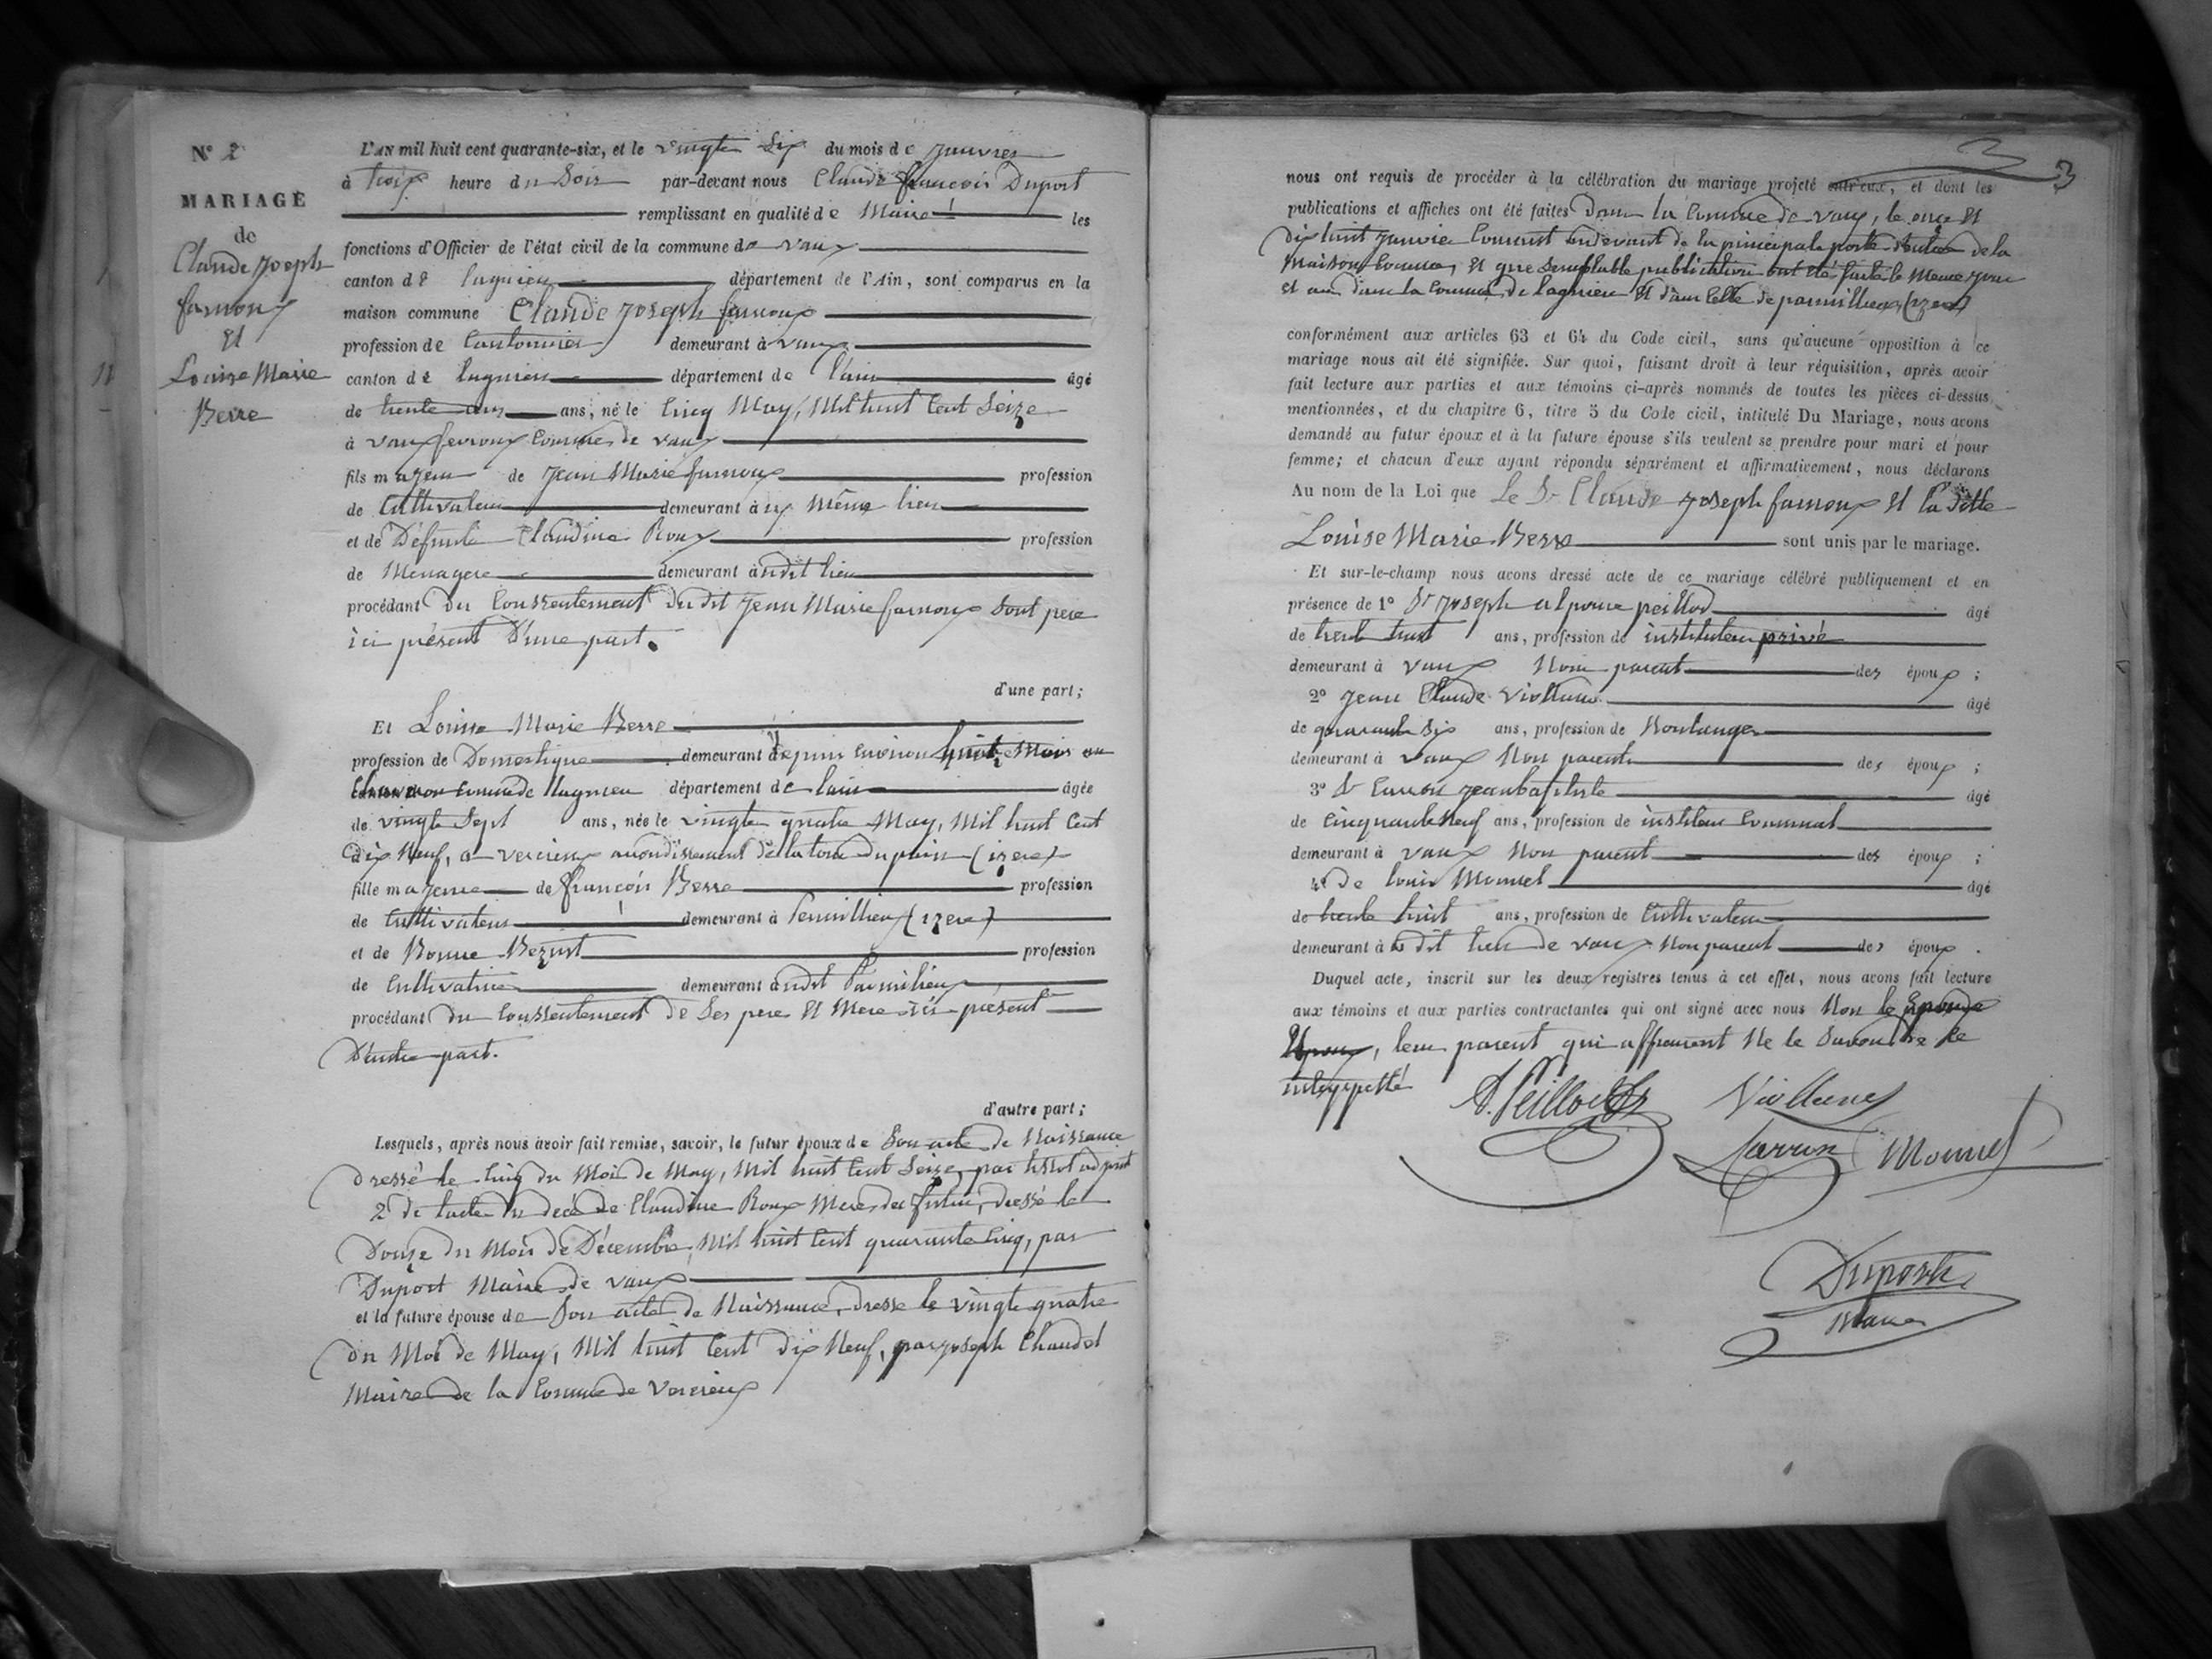 N° 2
MARIAGE
de
Claude Joseph
farnoux
Et
Louise Marie
Berre
L'AN mil huit cent quarante-six, et le vingte Six du mois de Janvier
à trois heure du Soir par-devant nous Claude françois Duport
remplissant en qualité de Maire les
fonctions d'Officier de l'état civil de la commune de vaux
canton de lagnieu département de l'Ain, sont comparus en la
maison commune Claude Joseph farnoux
profession de Cantonnier demeurant à vaux
canton de lagnieu département de l'ain âgé
de trente ans ans, né le Cinq May, Mil huit Cent Seize
à vaux fevroux Commune de vaux
fils majeur de Jean Marie farnoux profession
de Cultivateur demeurant à Même lieu
et de Défunte Claudine Roux profession
de Menagere demeurant audit lieu
procédant Du Conssentement du dit Jean Marie farnoux Sont pere
ici présent D'une part.
d'une part;
Et Louise Marie Berre
profession de Domestique demeurant depuis Environ huit Mois au
Commune de lagnieu département de lain âgée
de vingte Sept ans, née le vingte quatre May, Mil huit Cent
Dix Neuf, a vercieux arrondissement de latour du pain (izere)
fille majeure de françois Berre profession
de Cultivateur demeurant à Parmillieu (izere)
et de Bonne profession
de Cultivatrice demeurant audit Parmilieu
procédant du Conssentement de Ses pere Et Mere ici présent
D'autre part.
d'autre part;
Lesquels, après nous avoir fait remise, savoir, le futur époux de Son acte de Naissance
Dressé le Cinq du Mois de May, Mil huit Cent Seize, par
2° de lacte du décé de Claudine Roux Mere du futur, dressé le
Douze du Mois de Décembre, Mil huit Cent quarante Cinq, par
Duport Maire de vaux
et la future épouse de Son acte de Naissance, Dressé le vingte quatre
du Moi de May, Mil huit Cent Dix Neuf, par Joseph Chaudet
Maire de la Commune de Vercieux
3
nous ont requis de procéder à la célébration du mariage projeté entr'eux, et dont les
publications et affiches ont été faites Dans la Commune de vaux, le onze Et
Dix huit Janvier Courant audevant de la principale porte de la
Maison Commune, Et que Semblable publication ont été faite le Meme jour
et an dans la Commune de lagnieu Et dans Celle de parmillieux (izere)
conformément aux articles 63 et 64 du Code civil, sans qu'aucune opposition à ce
mariage nous ait été signifiée. Sur quoi, faisant droit à leur réquisition, après avoir
fait lecture aux parties et aux témoins ci-après nommés de toutes les pièces ci-dessus
mentionnées, et du chapitre 6, titre 5 du Code civil, intitulé Du Mariage, nous avons
demandé au futur époux et à la future épouse s'ils veulent se prendre pour mari et pour
femme; et chacun d'eux ayant répondu séparément et affirmativement, nous déclarons
Au nom de la Loi que Le Sr Claude Joseph farnoux Et la Delle
Louise Marie Berre sont unis par le mariage.
Et sur-le-champ nous avons dressé acte de ce mariage célébré publiquement et en
présence de 1° Sr Joseph peillod âgé
de trente huit ans, profession de instituteur privé
demeurant à vaux Non parent des époux ;
2° Jean Claude Viollane âgé
de quarante Six ans, profession de Boulanger
demeurant à vaux Non parent des époux ;
3° Sr Jean baptiste âgé
de Cinquante Neuf ans, profession de instituteur Communal
demeurant à vaux Non parent des époux ;
4° de louis Monnet âgé
de trente huit ans, profession de Cultivateur
demeurant à dit lieu de vaux Non parent des époux .
Duquel acte, inscrit sur les deux registres tenus à cet effet, nous avons fait lecture
aux témoins et aux parties contractantes qui ont signé avec nous Non le
leur parent qui affirment Ne le Savoir de ce
A. Peillod
Viollane
Monnet
Duport
Maire